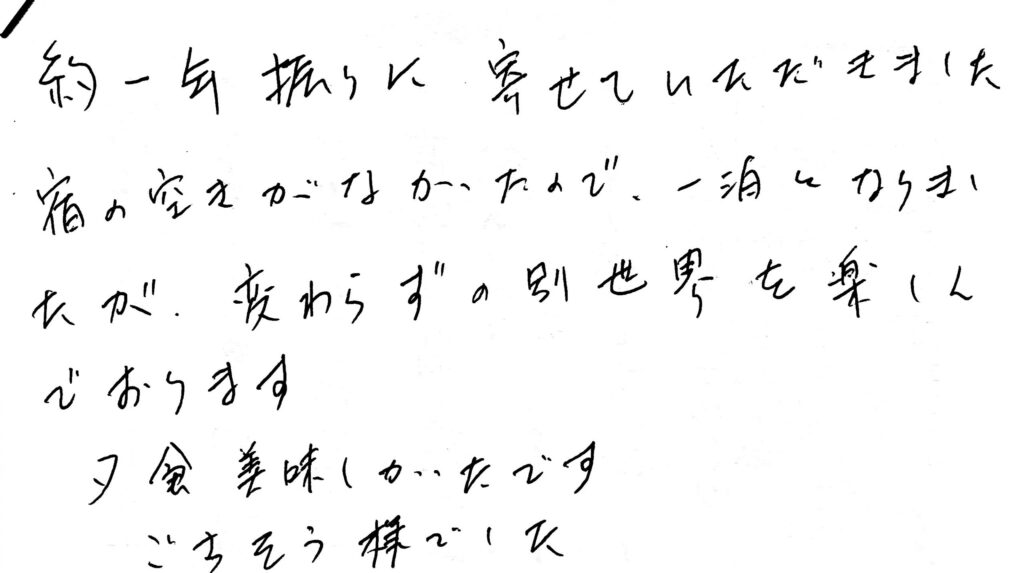 約一年振りに寄せていただきました
宿の空きがなかったので、一泊となりまし
たが、変わらずの別世界を楽しん
でおります
夕食美味しかったです
ごちそう様でした